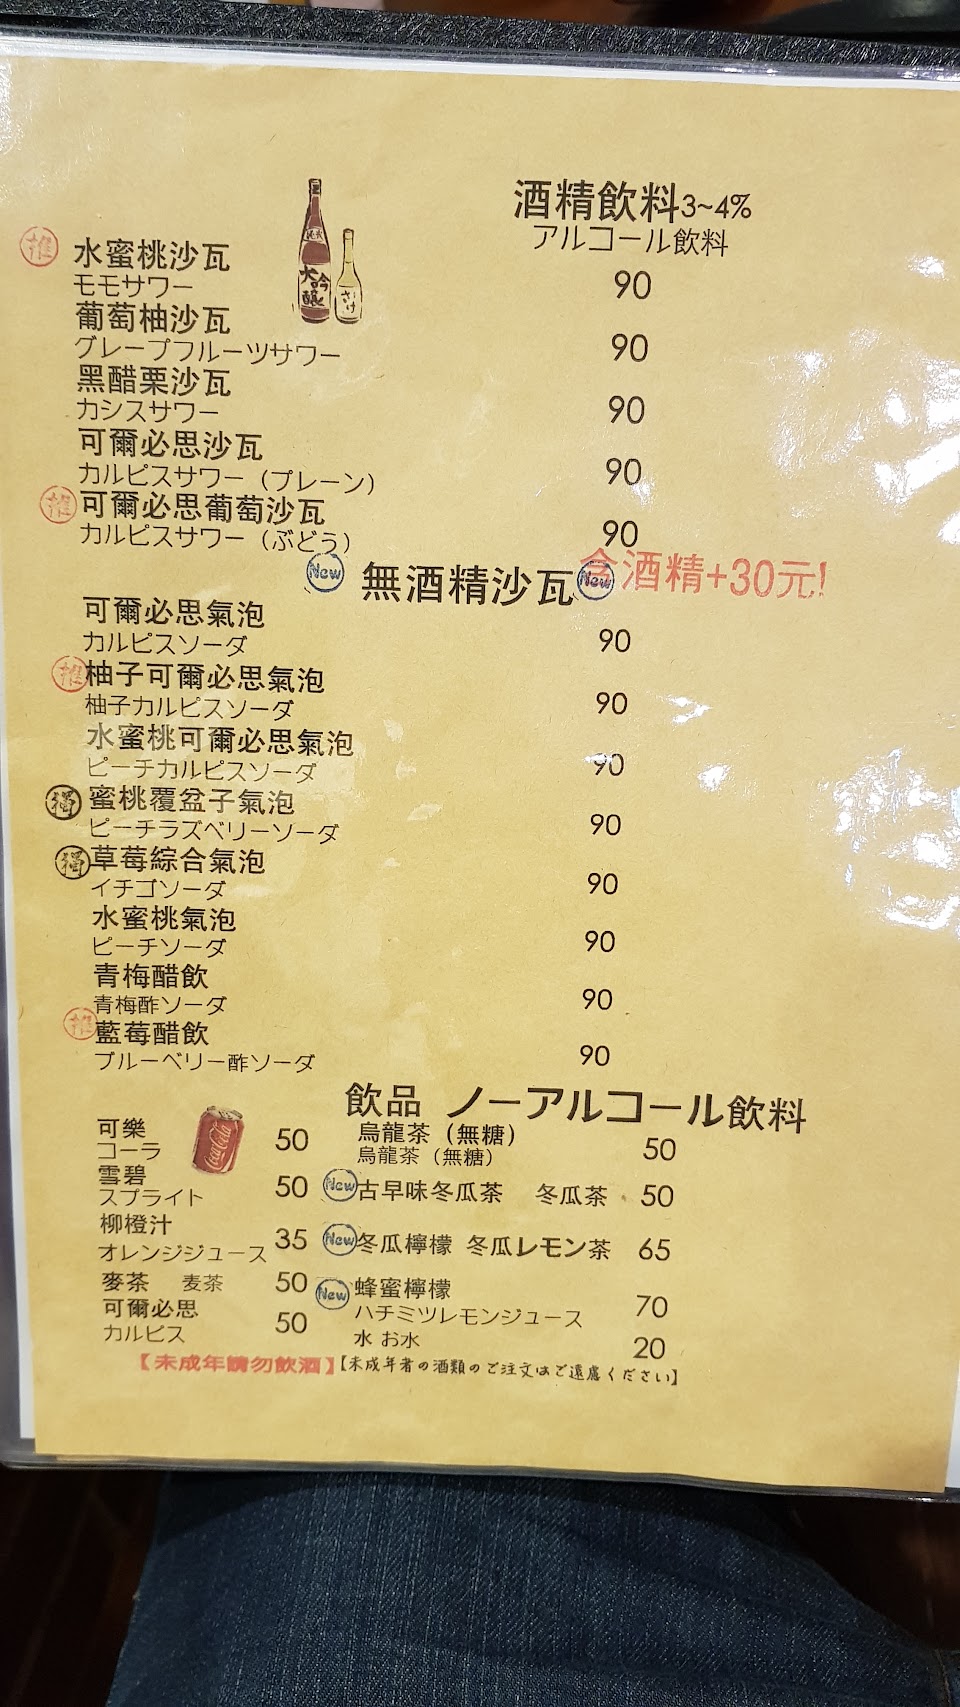 酒精飲料3~4%
アルコール飲料
推 水蜜桃沙瓦 90
モモサワー
葡萄柚沙瓦 90
グレープフルーツサワー
黑醋栗沙瓦 90
カシスサワー
可爾必思沙瓦 90
カルピスサワー（プレーン）
推 可爾必思葡萄沙瓦 90
カルピスサワー（ぶどう）
大吟醸
さけ
New 無酒精沙瓦 New 含酒精+30元!
可爾必思氣泡 90
カルピスソーダ
推 柚子可爾必思氣泡 90
柚子カルピスソーダ
水蜜桃可爾必思氣泡 90
ピーチカルピスソーダ
獨 蜜桃覆盆子氣泡 90
ピーチラズベリーソーダ
獨 草莓綜合氣泡 90
イチゴソーダ
水蜜桃氣泡 90
ピーチソーダ
青梅醋飲 90
青梅酢ソーダ
推 藍莓醋飲 90
ブルーベリー酢ソーダ
飲品 ノーアルコール飲料
可樂 50
コーラ
Coca-Cola
雪碧 50
スプライト
柳橙汁 35
オレンジジュース
麥茶 麦茶 50
可爾必思 50
カルピス
烏龍茶（無糖） 50
烏龍茶（無糖）
New 古早味冬瓜茶 冬瓜茶 50
New 冬瓜檸檬 冬瓜レモン茶 65
New 蜂蜜檸檬 70
ハチミツレモンジュース
水 お水 20
【未成年請勿飲酒】【未成年者の酒類のご注文はご遠慮ください】